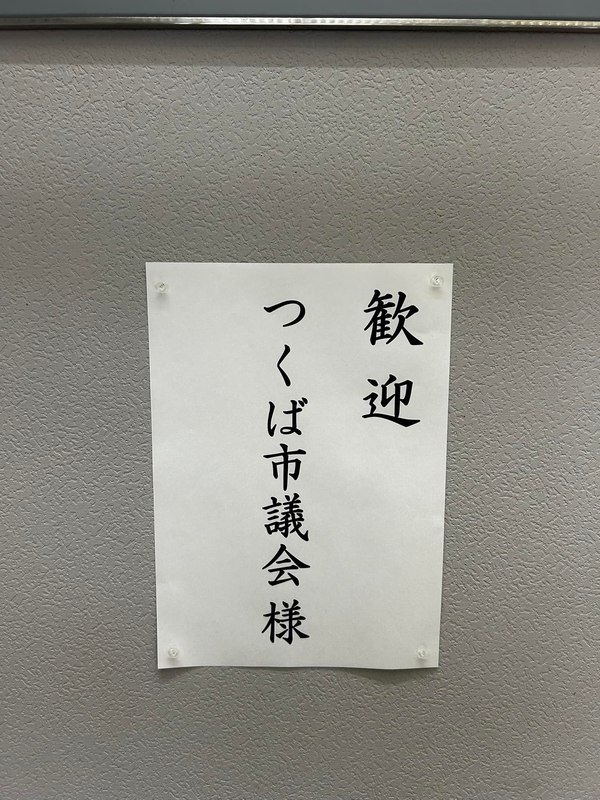 歓迎
つくば市議会様